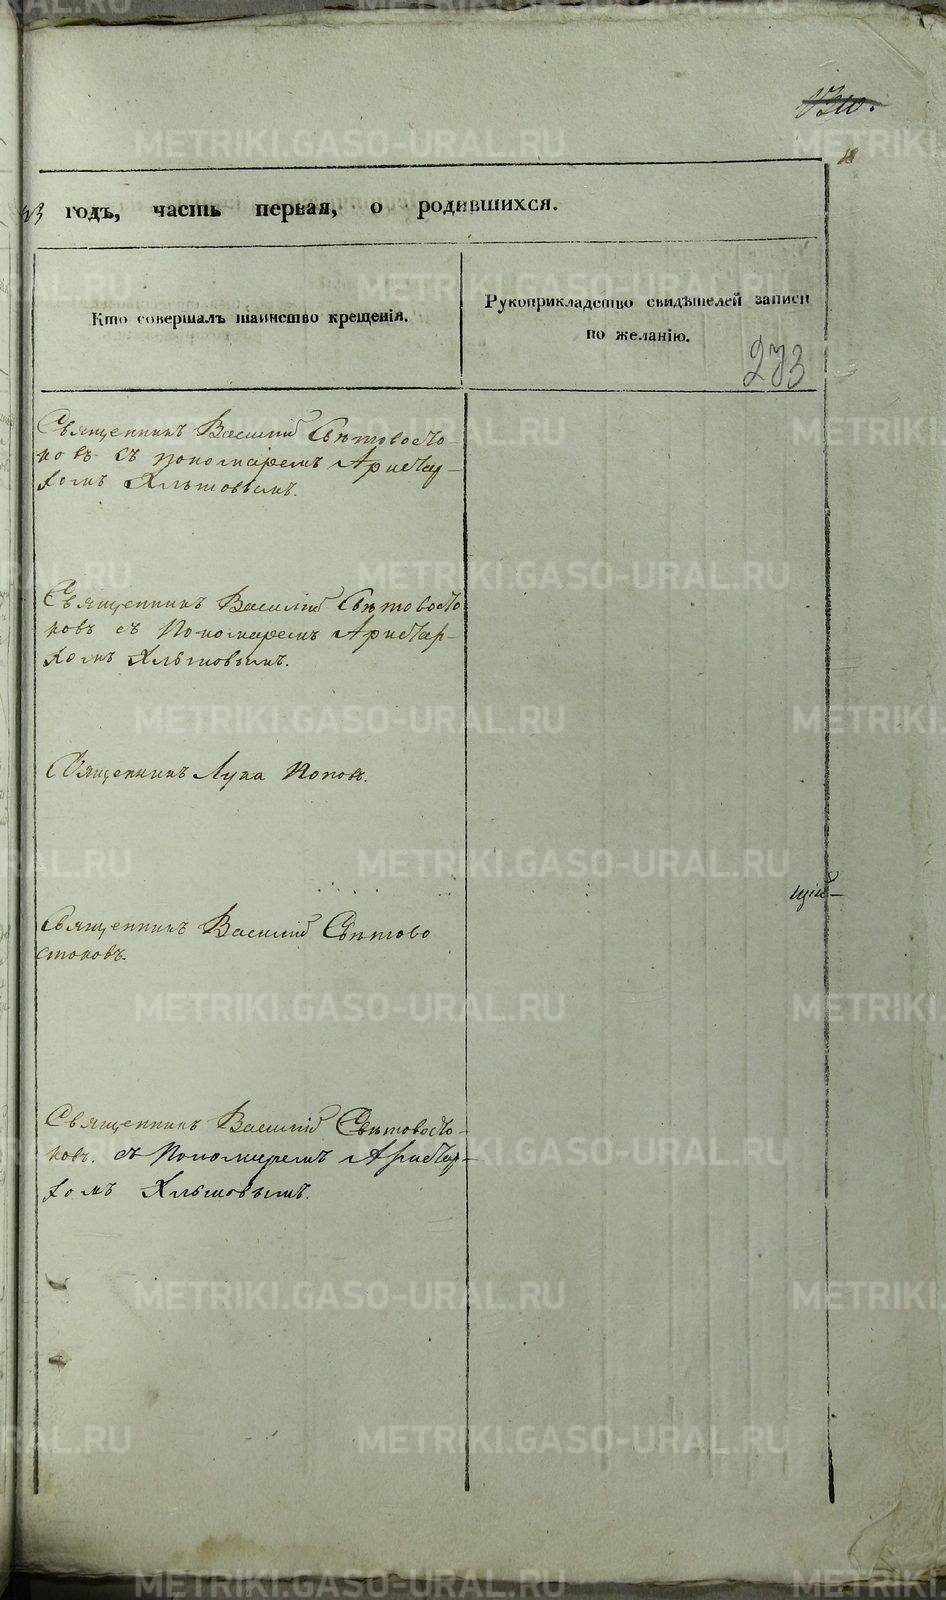 1310.
18
43 годъ, часть первая, о родившихся.
Кто совершалъ таинство крещенія.
Рукоприкладство свидѣтелей записи
по желанію.
233
Священникъ Василій Свѣтовосто-
ковъ съ пономаремъ Аристар-
хомъ Хлѣтовымъ.
Священникъ Василій Свѣтовосто
ковъ съ Пономаремъ Аристар-
хомъ Хлѣтовымъ.
Священникъ Лука Поповъ.
щій-
Священникъ Василій Свѣтово
стоковъ.
Священникъ Василій Свѣтовосто-
ковъ. съ Пономаремъ Аристар-
хомъ Хлѣтовымъ.
METRIKI.GASO-URAL.RU